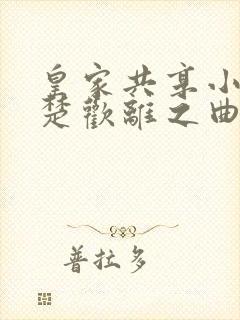 皇家共享小
楚歡離之曲
普拉多